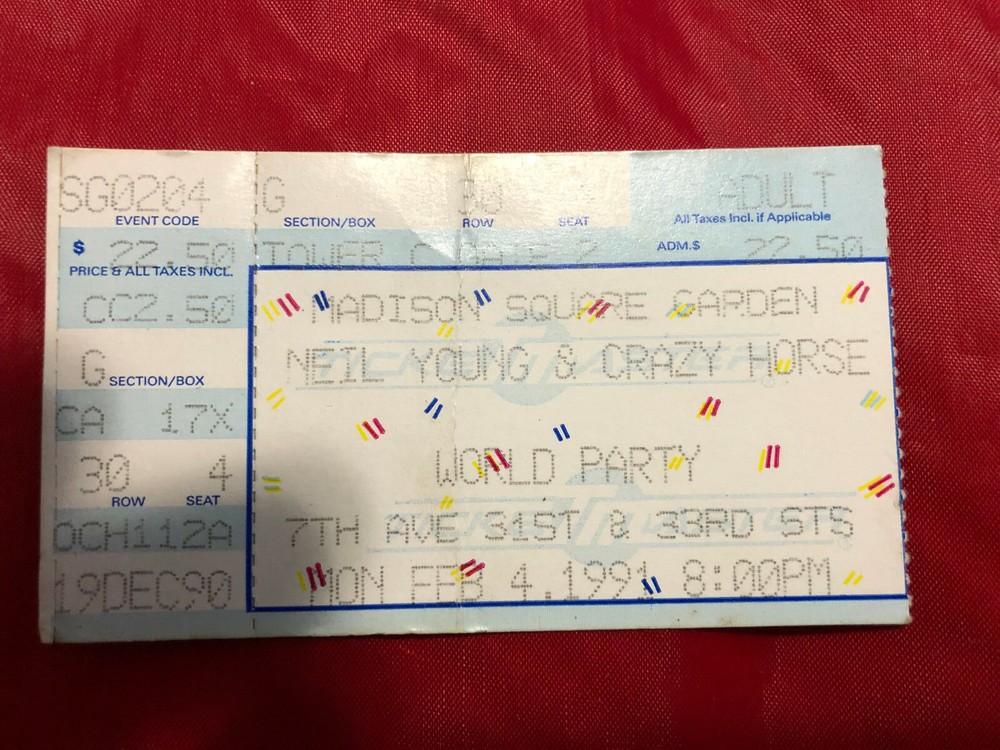 SG0204 G 30 ADULT
EVENT CODE SECTION/BOX ROW SEAT All Taxes Incl. if Applicable
$ 22.50 TOWER C ADM.$ 22.50
PRICE & ALL TAXES INCL.
CC2.50 MADISON SQUARE GARDEN
G NEIL YOUNG & CRAZY HORSE
SECTION/BOX
CA 17X
30 4 WORLD PARTY
ROW SEAT
OCH112A 7TH AVE 31ST & 33RD STS
19DEC90 MON FEB 4,1991 8:00PM